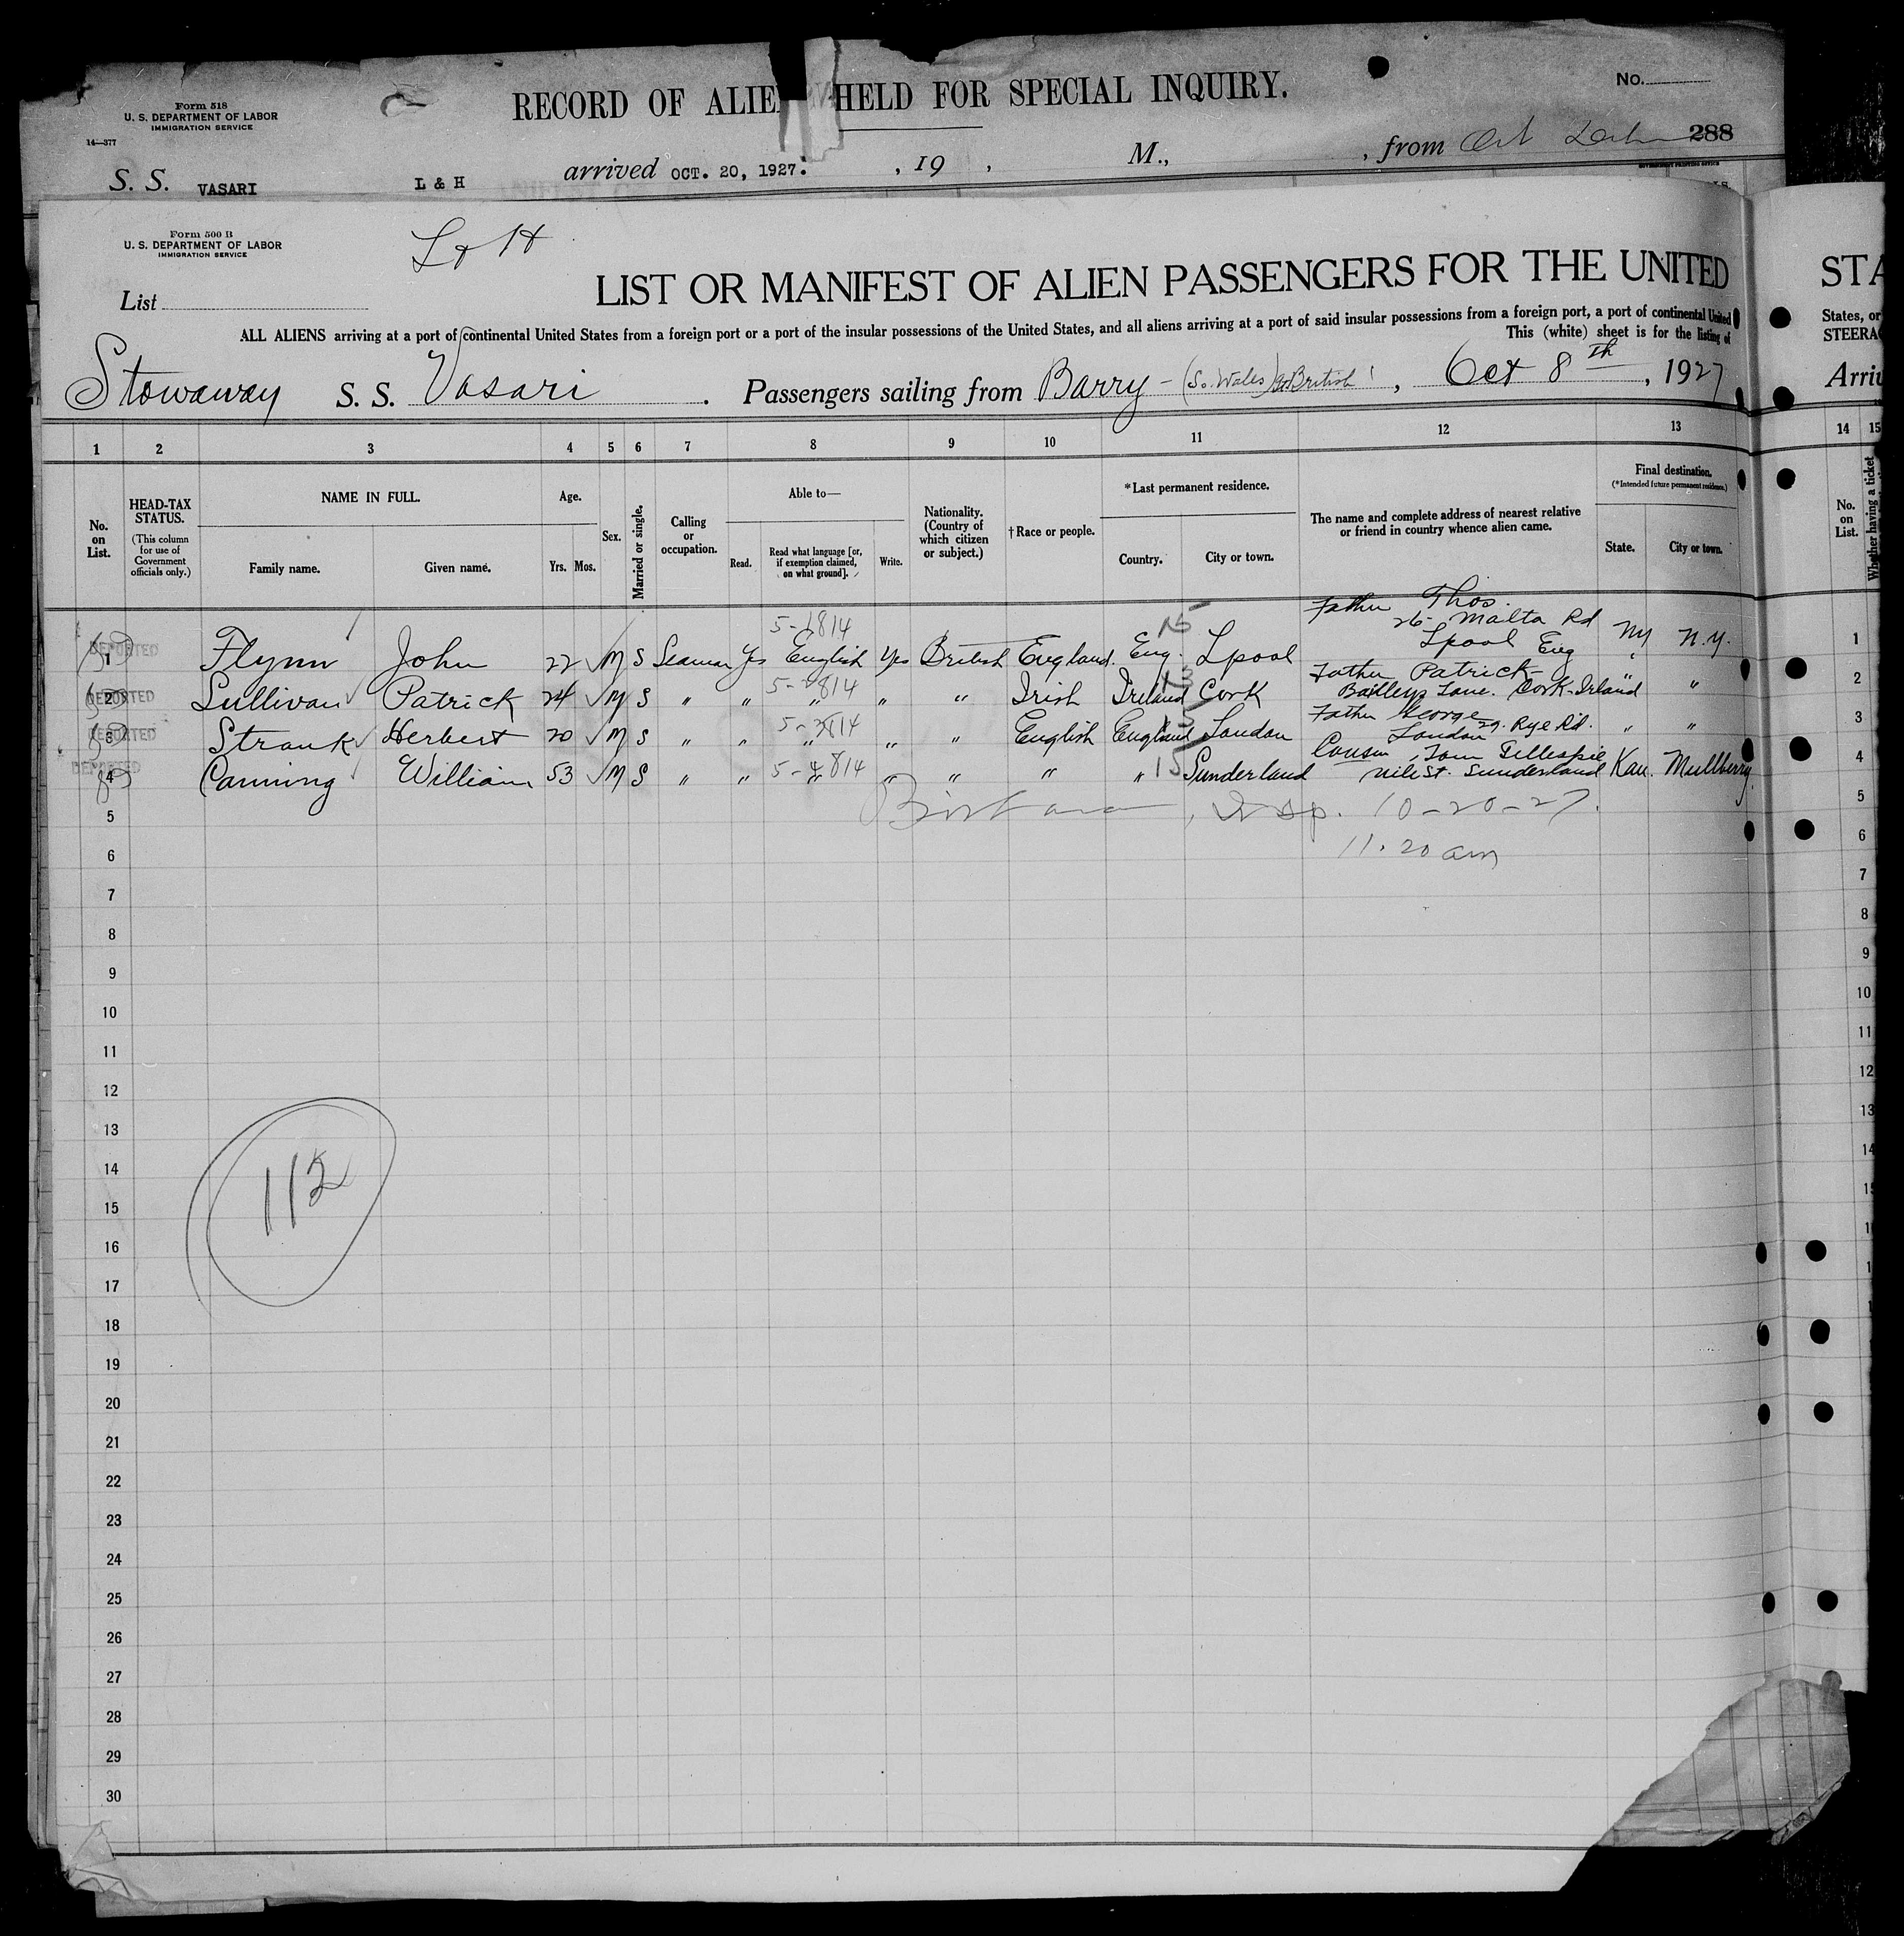 Form 518
U. S. DEPARTMENT OF LABOR
IMMIGRATION SERVICE
14—377
RECORD OF ALIEN HELD FOR SPECIAL INQUIRY.
No.
288
S. S. VASARI L & H arrived OCT. 20, 1927. , 19 , M., , from
Form 500 B
U. S. DEPARTMENT OF LABOR
IMMIGRATION SERVICE
L & H
List
LIST OR MANIFEST OF ALIEN PASSENGERS FOR THE UNITED STA
ALL ALIENS arriving at a port of continental United States from a foreign port or a port of the insular possessions of the United States, and all aliens arriving at a port of said insular possessions from a foreign port, a port of continental United States, or
This (white) sheet is for the listing of STEERA
Stowaway S. S. Vasari. Passengers sailing from Barry - (So. Wales) British, Oct 8th, 1927 Arri
1 2 3 4 5 6 7 8 9 10 11 12 13 14 15
No. on List.
HEAD-TAX STATUS.
(This column for use of Government officials only.)
NAME IN FULL.
Family name. Given name.
Age.
Yrs. Mos.
Sex.
Married or single.
Calling or occupation.
Able to—
Read. Read what language [or, if exemption claimed, on what ground]. Write.
Nationality. (Country of which citizen or subject.)
†Race or people.
*Last permanent residence.
Country. City or town.
The name and complete address of nearest relative or friend in country whence alien came.
Final destination.
(*Intended future permanent residence.)
State. City or town.
No. on List.
Whether having a ticket
5-1814 15 Father Thos.
26- Malta Rd
DEPORTED 1 Flynn John 22 M S Seaman Yes English Yes British England. Eng. Lpool Lpool Eng NY N.Y. 1
5-2814 13 Father Patrick
DEPORTED 2 Sullivan Patrick 24 M S " " " " " Irish Ireland Cork Bailleys Lane. Cork-Irland " " 2
5-3814 15 Father George
DEPORTED 3 Strank Herbert 20 M S " " " " " English England London London 29. Rye Rd. " " 3
5-4814 15 Cousin, Tom Gillespie
DEPORTED 4 Canning William 53 M S " " " " " " " Sunderland Nile St. Sunderland Kan. Mullberry. 4
Insp. 10-20-27.
11.20 am
5 5
6 6
7 7
8 8
9 9
10 10
11 11
12 12
13 13
14 14
15 15
112
16
17
18
19
20
21
22
23
24
25
26
27
28
29
30